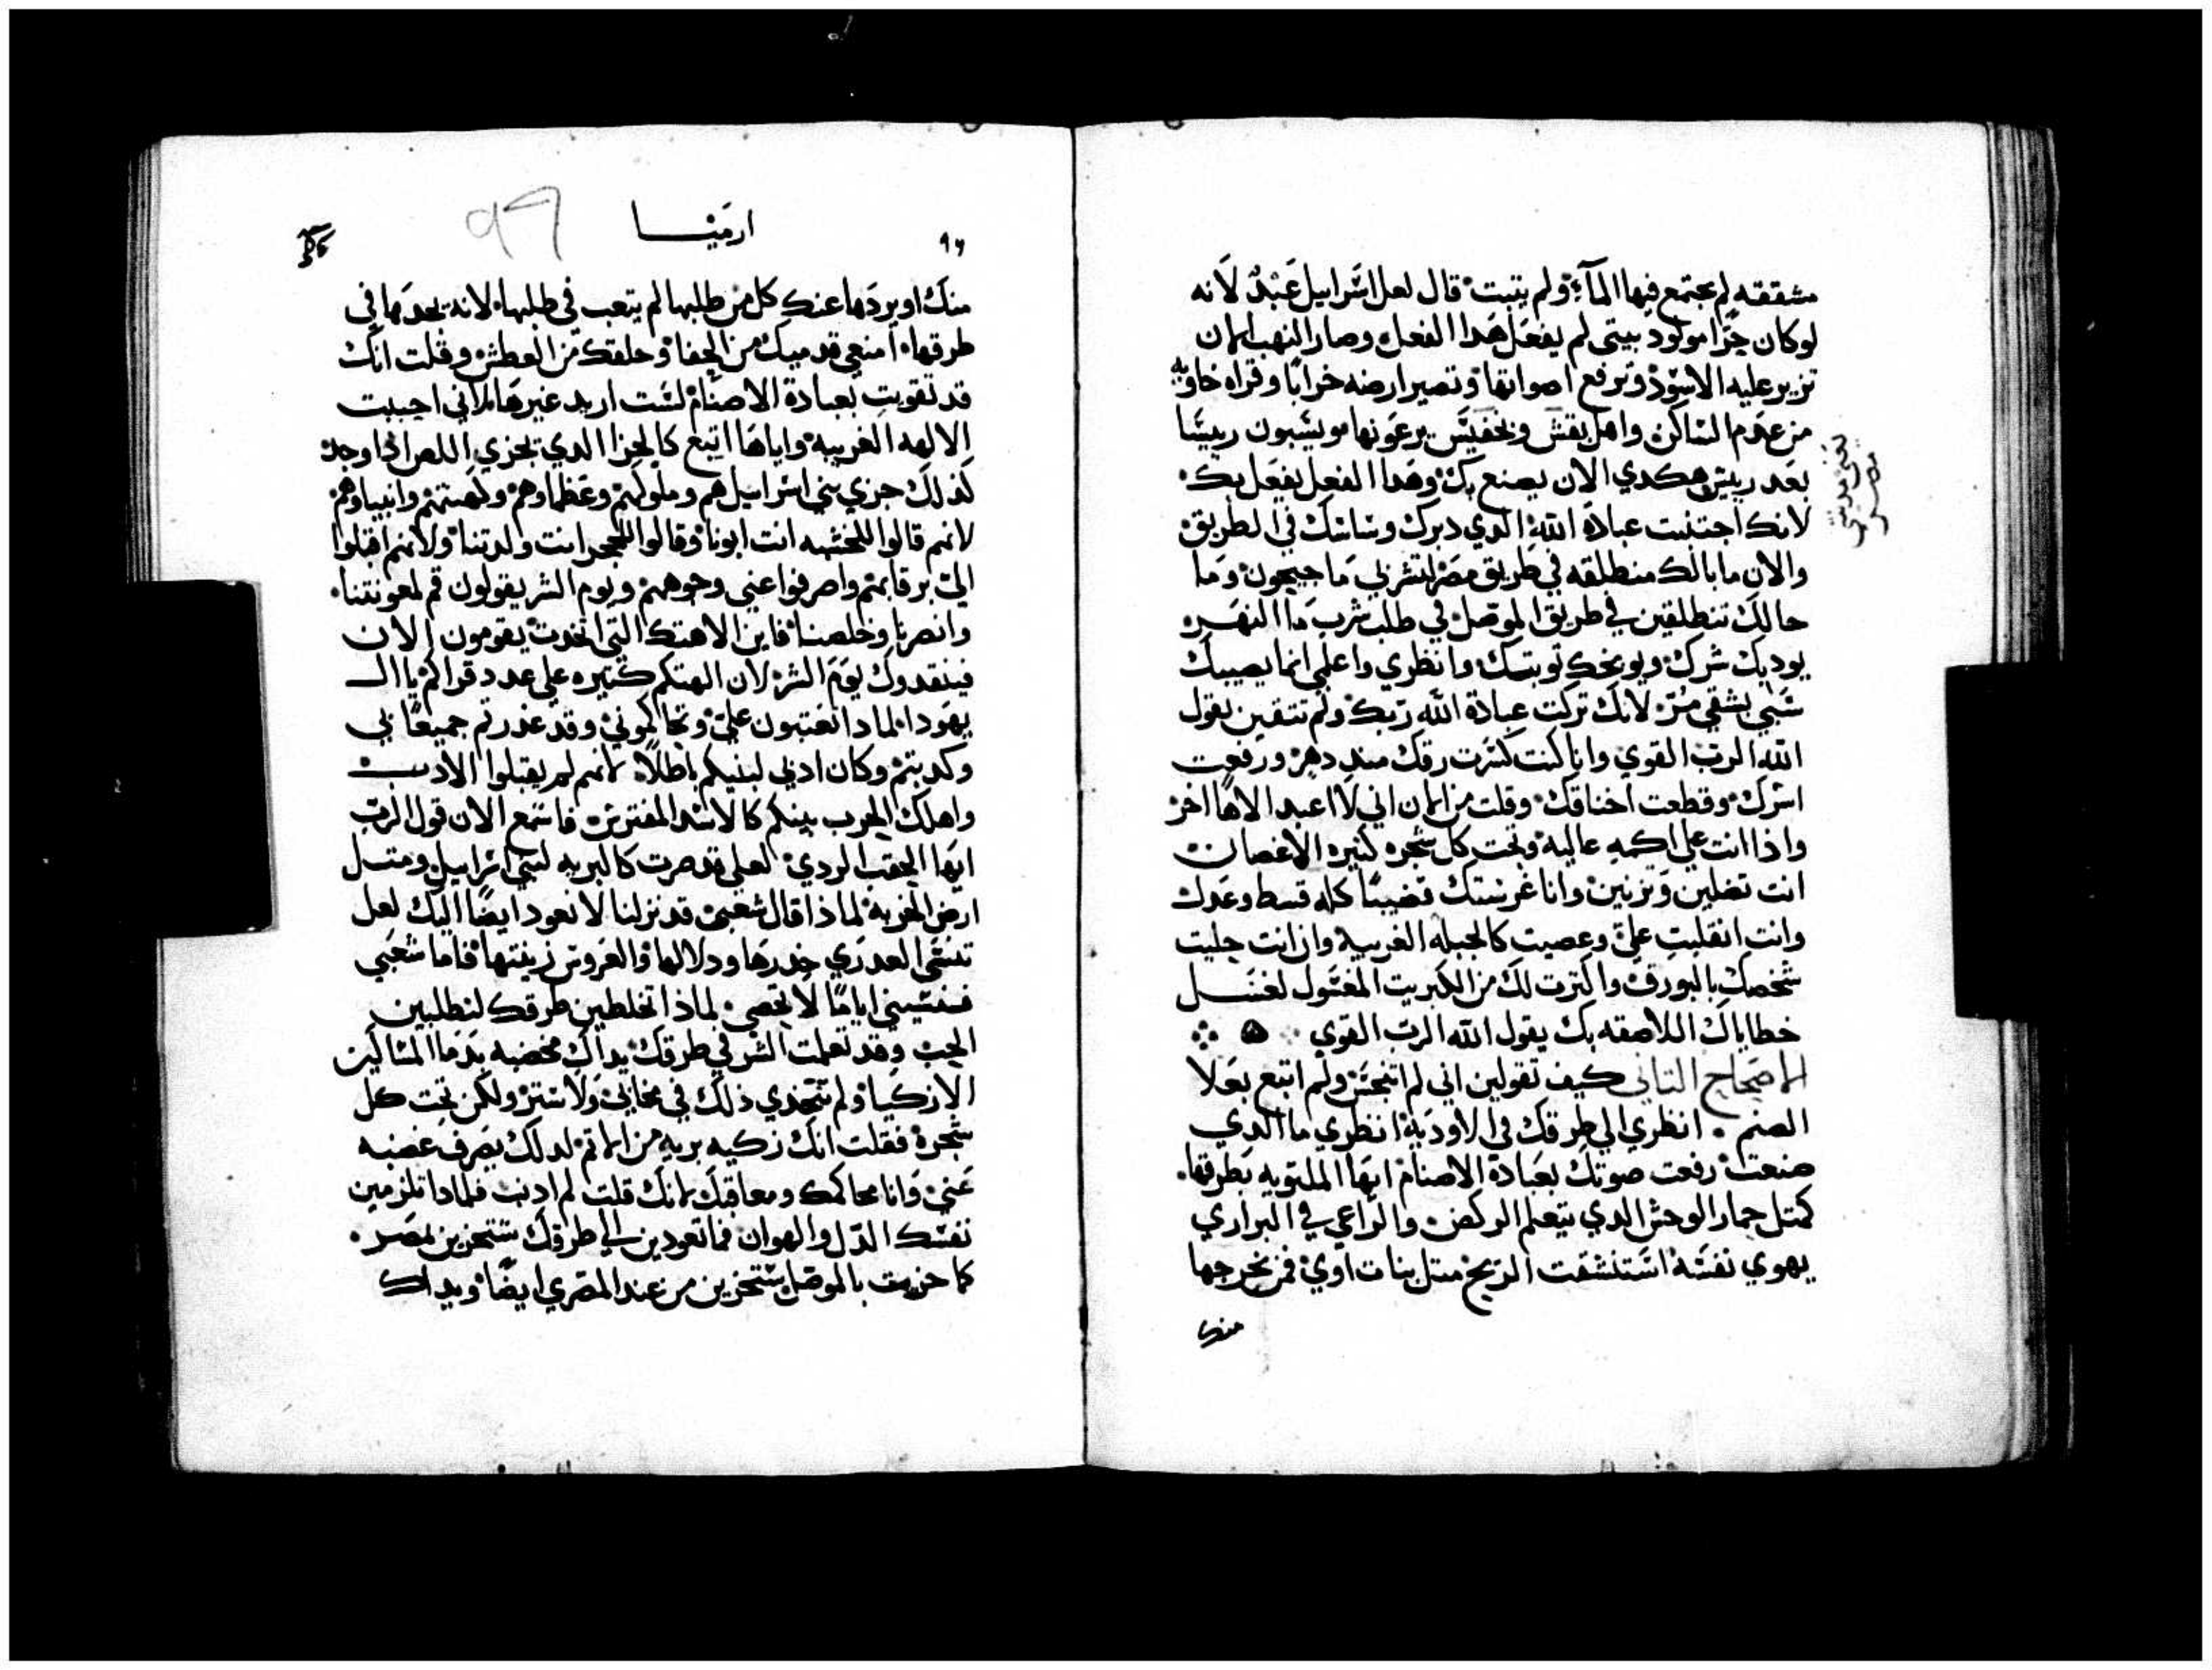 مشققه لم يجتمع فيها المآء ولم يتبت قال لعل اسرابيل عبدٌ لانه
لوكان حرّا مولود بيتى لم يفعل هدا الفعل وصار النهب لان
تزير عليه الاسود وترفع اصواتها وتصير ارضه خرابًا وقراه خاويه
من عدم الساكن واهل يقش وتحفيس يرعونها ويسبون ربيسًا
بعد ربيس هكدي الان يصنع بك وهدا الفعل يفعل بك
لانك اجتنبت عبادة الله الدي دبرك وساسك في الطريق
والان ما بالك منطلقه في طريق مصر لتشربي ما جيحون وما
حالك تنطلقين في طريق الموصل في طلب شرب ما النهر
يوديك شرك ويوبخك توبتك وانظري واعلمي انما يصيبك
شي يشقي مرّ لانك تركت عبادة الله ربك ولم تتقين يقول
الله الرب القوي وانا كنت كسرت رقك مند دهر ورفعت
اسرك وقطعت اخناقك وقلت من الان اني لا اعبد الاها اخر
واذا انت على اكمه عاليه وتحت كل شجره كتيره الاغصان
انت تضلين وتزنين وانا غرستك قضيبًا كله قسط وعدل
وانت انقلبت عليّ وعصيت كالجبله الغريبه وان انت جليت
شخصك بالبورق واكترت لك من الكبريت المغسول لغسل
خطاياك اللاصقه بك يقول الله الرب القوي
الاصحاح التاني كيف تقولين اني لم اتنجس ولم اتبع بعلا
الصنم انظري الى طرقك في الاوديه انظري ما الدي
صنعت رفعت صوتك بعبادة الاصنام ايها الملتويه بطرقها
كمتل حمار الوحش الدي يتعلم الركض والراعي في البراري
يهوي نفسه استنشقت الريح متل بنات اوي فمن يخرجها
منك
يعنى مدينتى
مصر
٩٦
ارميا
99
منك او يردها عنك كل من طلبها لم يتعب في طلبها لانه يجدها في
طرقها امنعي قدميك من الحفا وحلقك من العطش وقلت انك
قد تقويت بعبادة الاصنام لست اريد غيرها لاني احببت
الالهه الغريبه واياها اتبع كالخزا الدي يخزي اللص اذا وجد
كذلك خزي بني اسرابيل هم وملوكهم وعظماوهم وكهنتهم وانبياوهم
لانهم قالوا للخشبه انت ابونا وقالوا للحجر انت ولدتنا ولانهم اقبلوا
اليّ برقابهم واصرفوا عني وجوههم ويوم الشر يقولون قم لمعونتنا
وانصرنا وخلصنا فاين الاهتك التي اتخدت يقومون الان
فينقدوك يوم الشر لان الهتكم كتيره على عدد قراكم يا ال
يهودا لمادا تعتبون عليّ وتحاكموني وقد غدرتم جميعًا بي
وكدبتم وكان ادبي لبنيكم باطلاً لانهم لم يقبلوا الادب
واهلك الحرب بينكم كالاسد المفترس فاسمع الان قول الرب
ايها الحقب الردي لعلي قد صرت كالبريه لبني اسرابيل ومتل
ارض الخربه لماذا قال شعبي قد نزلنا لا نعود ايضًا اليك لعل
تنسى العدري خدرها ودلالها والعروس زينتها فاما شعبي
فنسيني ايامًا لا تحصى لماذا تخلطين طرقك لتطلبين
الحب وقد تعلمت الشر في طرقك يداك مخضبه بدما المساكين
الازكيا ولم تجدي ذلك في مخابي ولا ستر ولكن تحت كل
شجرة فقلت انك زكيه بريه من الاتم لدلك يصرف غضبه
عني وانا محاكمك ومعاقبك لانك قلت لم ادنب فلمادا تلزمين
نفسك الدّل والهوان فما تعودين الى طرقك ستخزين بمصر
كما خزيت بالموصل ستخزين من عند المصري ايضًا ويداك